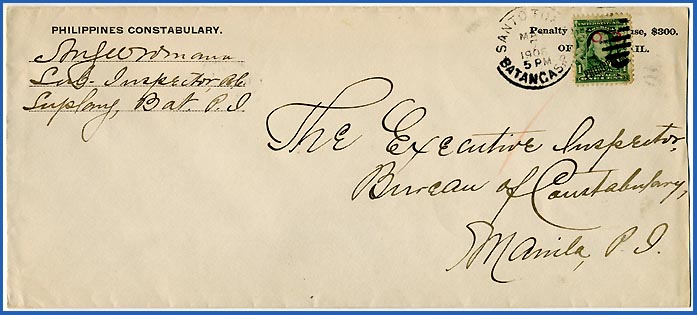 PHILIPPINES CONSTABULARY.
Sub-Inspector P.C.
Suplang, Bat. P.I.
SANTO TO
MA
1905
5 PM
BATANGAS
Penalty use, $300.
OF IL.
1
The Executive Inspector,
Bureau of Constabulary,
Manila, P.I.